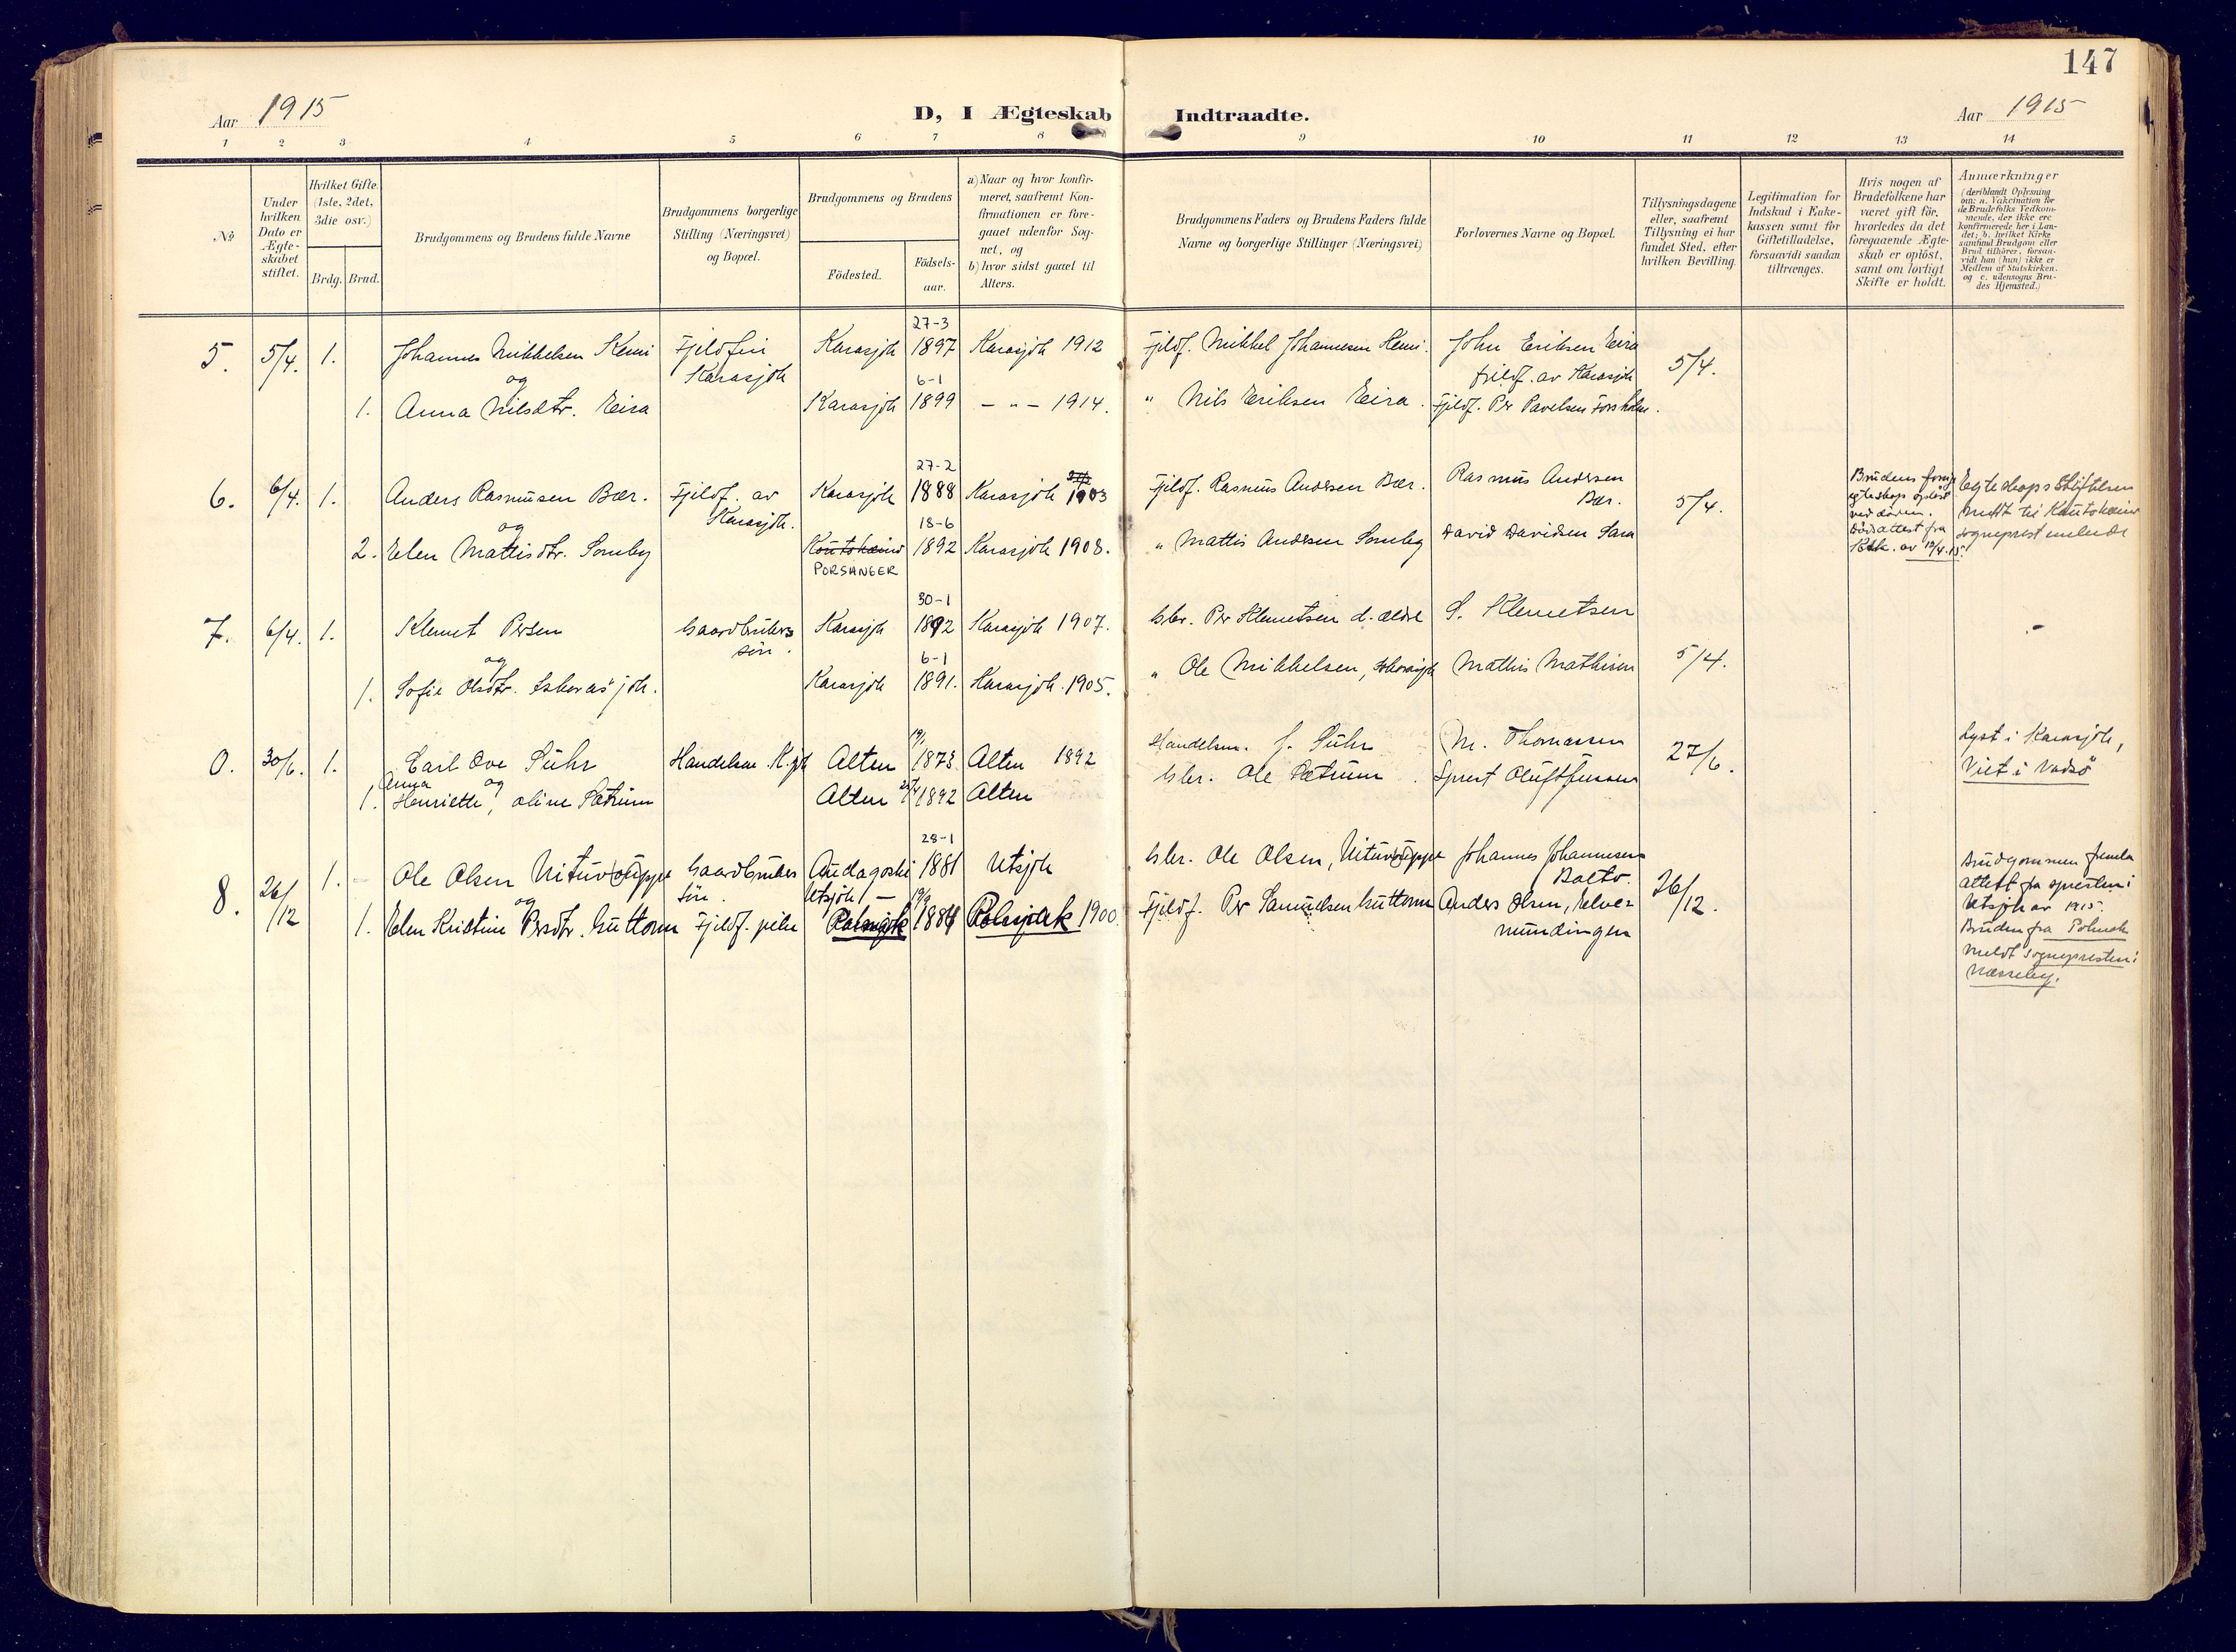 147
Aar 1915
D, I Ægteskab Indtraadte.
Aar 1915
1 2 3 4 5 6 7 8 9 10 11 12 13 14
No
Under hvilken Dato er Ægteskabet stiftet.
Hvilket Gifte. (1ste, 2det, 3die osv.)
Brdg. Brud.
Brudgommens og Brudens fulde Navne
Brudgommens borgerlige Stilling (Næringsvei) og Bopæl.
Brudgommens og Brudens
Födested.
Födsels-aar.
a) Naar og hvor konfir-
meret, saafremt Kon-
firmationen er fore-
gaaet udenfor Sog-
net, og
b) hvor sidst gaaet til
Alters.
Brudgommens Faders og Brudens Faders fulde
Navne og borgerlige Stillinger (Næringsvei)
Forlovernes Navne og Bopæl.
Tillysningsdagene
eller, saafremt
Tillysning ei har
fundet Sted, efter
hvilken Bevilling.
Legitimation for
Indskud i Enke-
kassen samt for
Giftetilladelse,
forsaavidt saadan
tiltrænges.
Hvis nogen af
Brudefolkene har
været gift för,
hvorledes da det
foregaaende Ægte-
skab er oplöst,
samt om lovligt
Skifte er holdt.
Anmærkninger
(deriblandt Oplysning
om: a. Vakcination for
de Brudefolks Vedkom-
mende, der ikke ere
konfirmerede her i Lan-
det; b. hvilket Kirke-
samfund Brudgom eller
Brud tilhörer, forsaa-
vidt han (hun) ikke er
Medlem af Statskirken,
og c. udensogns Bru-
des Hjemsted.)
27-3
5. 5/4. 1. Johannes Mikkelsen Kemi Fjeldfin Karasjok 1897 Karasjok 1912 Fjeldf. Mikkel Johannesen Kemi. John Eriksen Eira 5/4.
og Karasjok 6-1 fjeldf. av Karasjok
1. Anna Nilsdtr. Eira Karasjok 1899 — " — 1914. " Nils Eriksen Eira. Fjeldf. Per Pavelsen
27-2
6. 6/4. 1. Anders Rasmusen Bær. Fjeldf. av Karasjok 1888 Karasjok 1903 Fjeldf. Rasmus Andersen Bær. Rasmus Andersen 5/4.
og Karasjok. 18-6 Bær.
2. Elen Mattisdtr. Somby Koutokæino 1892 Karasjok 1908. " Mattis Andersen Somby David Davidsen Sara
PORSANGER
Brudens
egteskap opløst
ved døden.
Dødsattest fra
av 12/4-15.
Egteskapsstiftelsen
meldt til Kautokeino
sogneprest
30-1
7. 6/4. 1. Klemet Persen Gaardbrukers Karasjok 1892 Karasjok 1907. Gbr. Per Klemetsen d. ældre S. Klemetsen
og søn. 6-1
1. Sofie Olsdtr. Iskorasjok. Karasjok 1891. Karasjok. 1905. " Ole Mikkelsen, Iskorasjok Mathis Mathisen 5/4.
0. 30/6. 1. Carl Ove Suhr Handelsm. K.jok Alten 1873 Alten 1892 Handelsm. J. Suhr M. Thomassen 27/6.
Anna og
1. Henriette, Oline Sætrum Alten 1892 Alten Gbr. Ole Sætrum.
Lyst i Karasjok,
Viet i Vadsö
28-1
8. 26/12 1. Ole Olsen Nituvuoppe Gaardbruker Audagoski 1881 Utsjok Gbr. Ole Olsen, Nituvuoppe Johannes Johannesen 26/12.
og søn. Utsjok — Balto.
1. Elen Kristine Persdtr. Guttorm Fjeldf. pike Polmak 1884 Polmak 1900 Fjeldf. Per Samuelsen Guttorm Anders Olsen, Elve-
mundingen
Brudgommen
attest fra presten i
Utsjok av 1915.
Bruden fra Polmak
meldt sognepresten i
Næsseby.